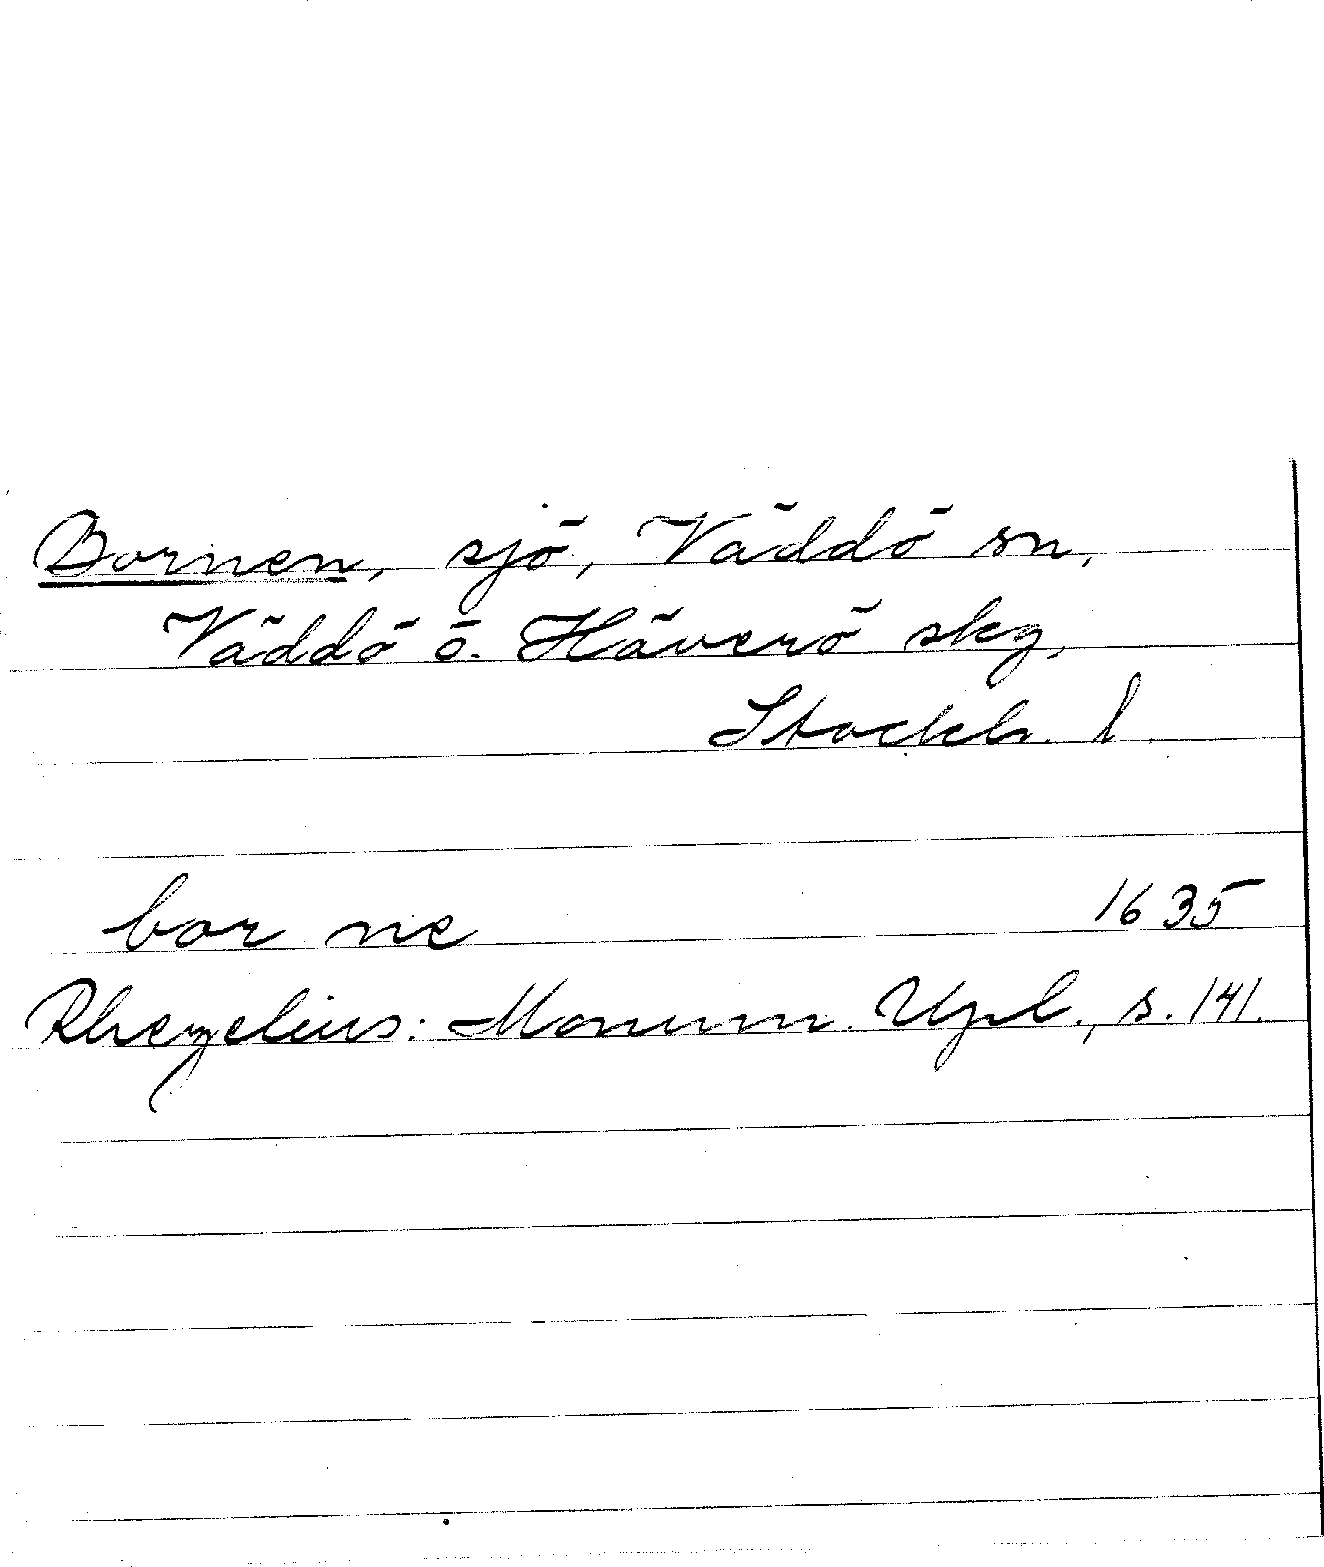 Bornen, sjö, Väddö sn,
Väddö o. Häverö skg,
Stockh. l.
bor ne 1635
Rhezelius: Monum. Upl., s. 141.